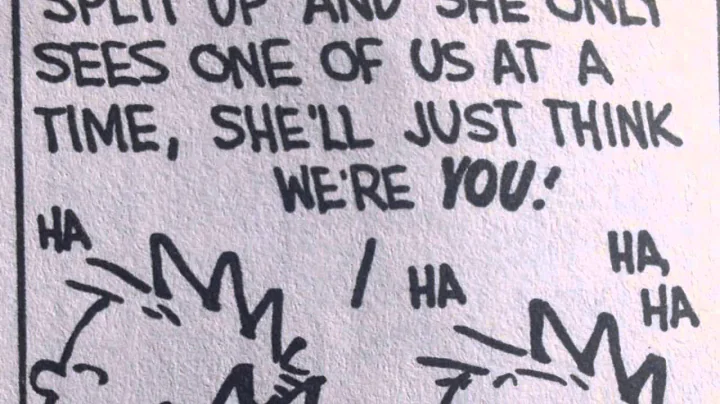 SPLIT UP AND SHE ONLY
SEES ONE OF US AT A
TIME, SHE'LL JUST THINK
WE'RE YOU!
HA
HA
HA,
HA